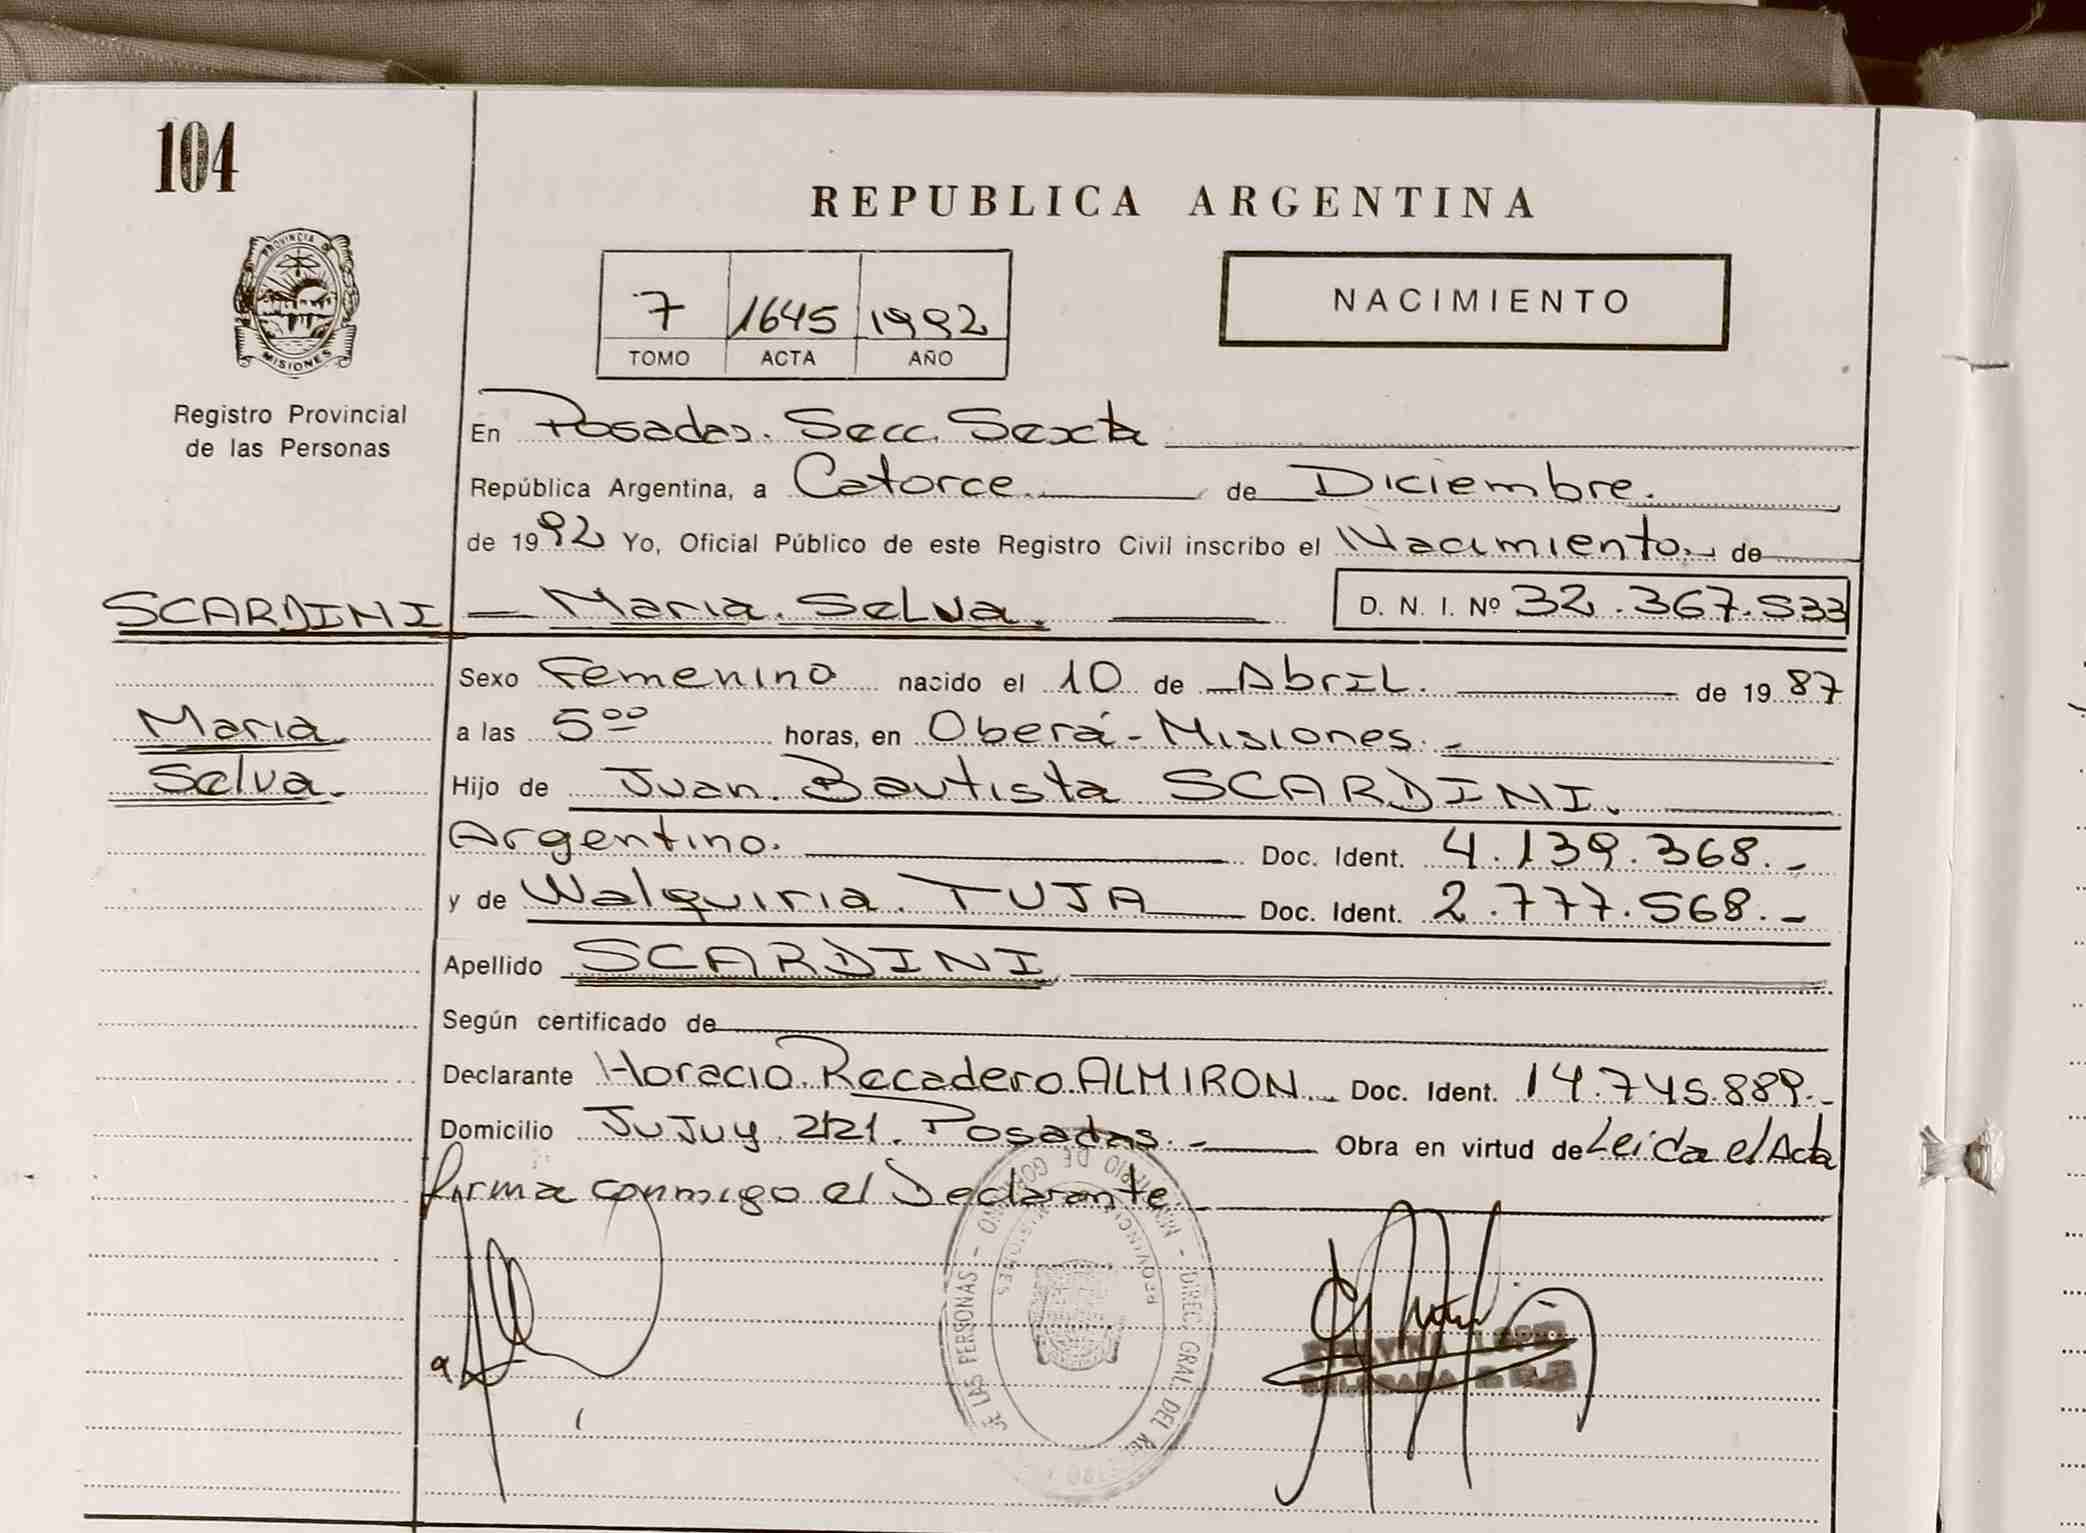 104
REPUBLICA ARGENTINA
PROVINCIA DE
MISIONES
Registro Provincial
de las Personas
7 1645 1992
TOMO ACTA AÑO
NACIMIENTO
En Posadas. Secc. Sexta
República Argentina, a Catorce. de Diciembre.
de 1992 Yo, Oficial Público de este Registro Civil inscribo el Nacimiento. de
SCARDINI Maria. Selva. D. N. I. Nº 32.367.533
Sexo Femenino nacido el 10 de Abril. de 1987
Maria
Selva.
a las 5⁰⁰ horas, en Oberá-Misiones.-
Hijo de Juan. Bautista SCARDINI.
Argentino. Doc. Ident. 4.139.368.-
y de Walquiria. TUJA Doc. Ident. 2.777.568.-
Apellido SCARDINI
Según certificado de
Declarante Horacio. Recadero. ALMIRON. Doc. Ident. 14.745.889.-
Domicilio Jujuy 2121. Posadas.- Obra en virtud de Leida el Acta
firma conmigo el Declarante
MINISTERIO DE GOBIERNO - DIREC. GRAL. DEL REGISTRO DE LAS PERSONAS -
PROVINCIA MISIONES
LOPEZ
DELEGADA